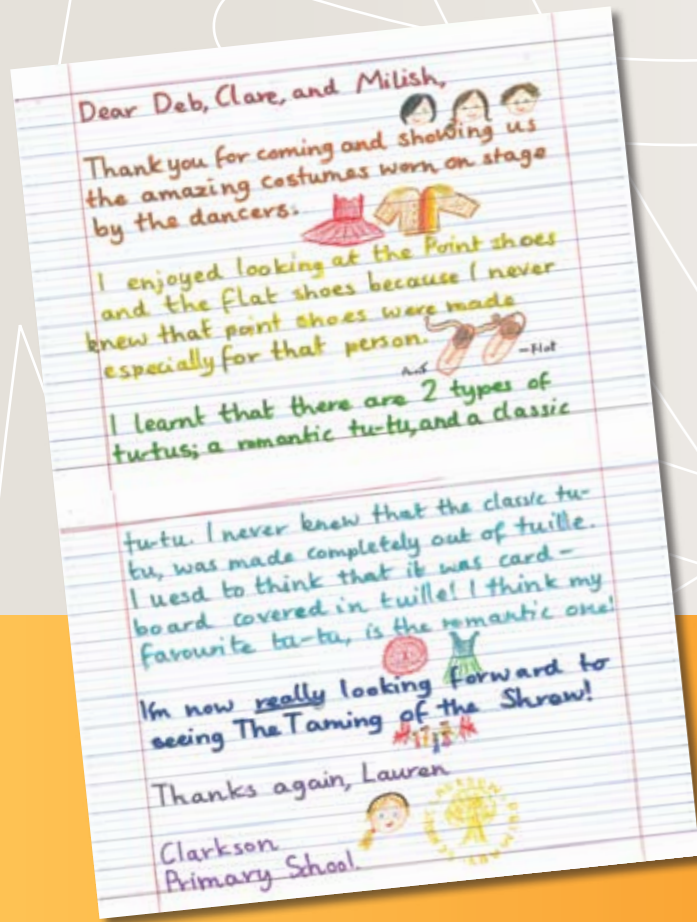 Dear Deb, Clare, and Milish,
Thank you for coming and showing us
the amazing costumes worn on stage
by the dancers.
I enjoyed looking at the Point shoes
and the flat shoes because I never
knew that point shoes were made
especially for that person.
-Flat
I learnt that there are 2 types of
tu-tus; a romantic tu-tu, and a classic
tu-tu. I never knew that the classic tu-
tu, was made completely out of tuille.
I uesd to think that it was card-
board covered in tuille! I think my
favourite tu-tu, is the romantic one!
I'm now really looking forward to
seeing The Taming of the Shrew!
Thanks again, Lauren
Clarkson
Primary School.